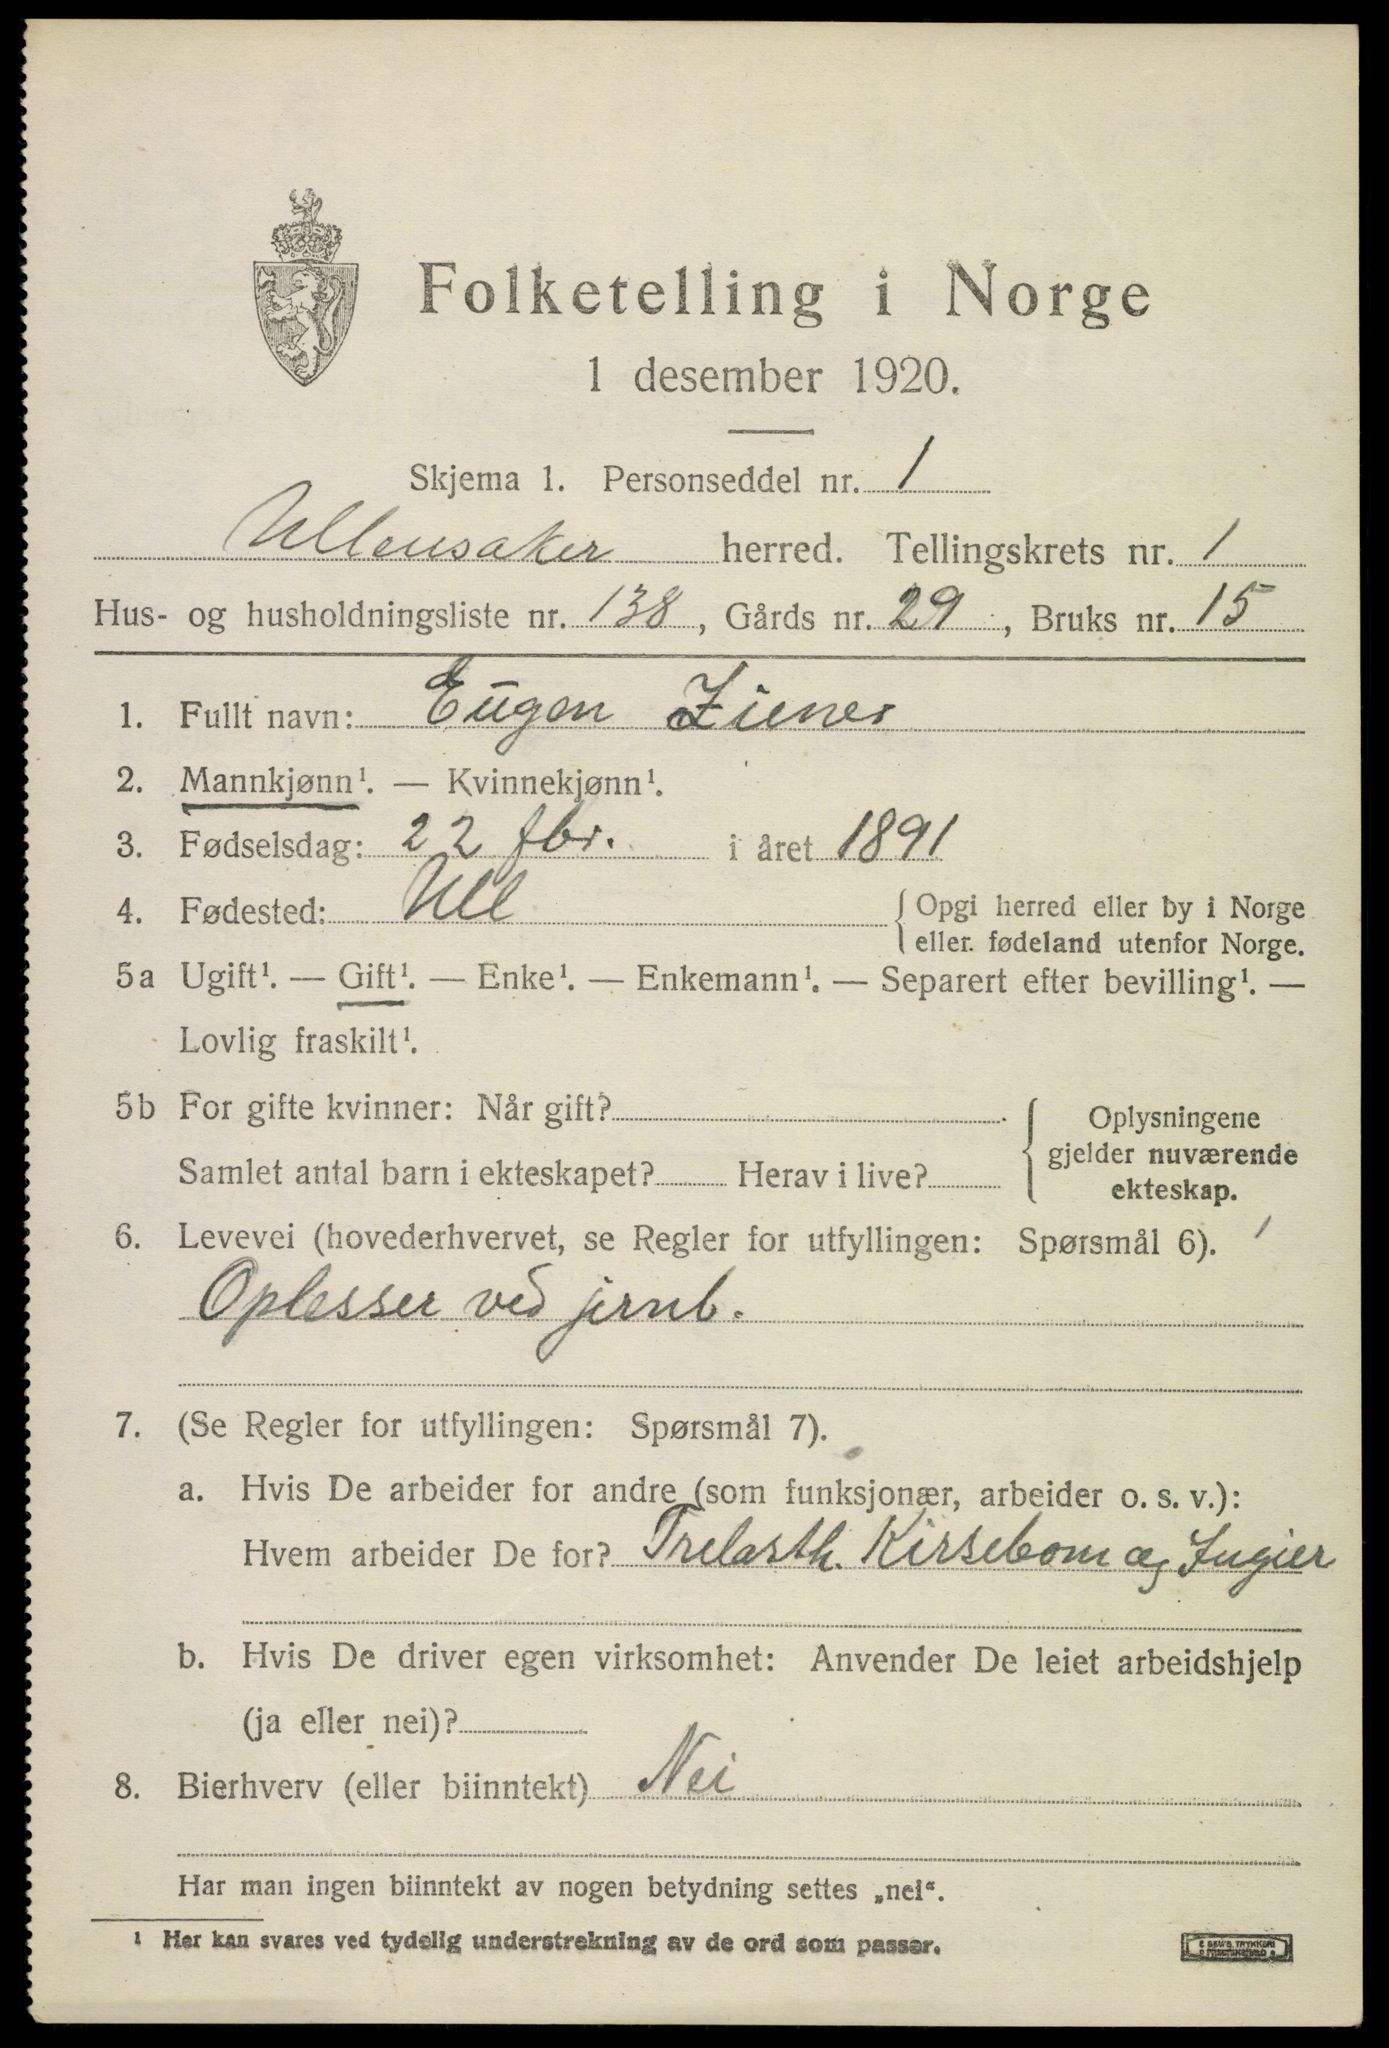 Folketelling i Norge
1 desember 1920.
Skjema 1. Personseddel nr. 1
Ullensaker herred. Tellingskrets nr. 1
Hus- og husholdningsliste nr. 138, Gårds nr. 29, Bruks nr. 15
1. Fullt navn: Eugen Ziener
2. Mannkjønn¹. — Kvinnekjønn¹.
3. Fødselsdag: 22 fbr. i året 1891
4. Fødested: Ull { Opgi herred eller by i Norge
eller. fødeland utenfor Norge.
5a Ugift¹. — Gift¹. — Enke¹. — Enkemann¹. — Separert efter bevilling¹. —
Lovlig fraskilt¹.
5b For gifte kvinner: Når gift?
Samlet antal barn i ekteskapet? Herav i live?
Oplysningene
gjelder nuværende
ekteskap.
6. Levevei (hovederhvervet, se Regler for utfyllingen: Spørsmål 6). 1
Oplesser ved jernb.
7. (Se Regler for utfyllingen: Spørsmål 7).
a. Hvis De arbeider for andre (som funksjonær, arbeider o. s. v.):
Hvem arbeider De for? Trelasth. Kirsebom og
b. Hvis De driver egen virksomhet: Anvender De leiet arbeidshjelp
(ja eller nei)?
8. Bierhverv (eller biinntekt) Nei
Har man ingen biinntekt av nogen betydning settes „nei“.
¹ Her kan svares ved tydelig understrekning av de ord som passer.